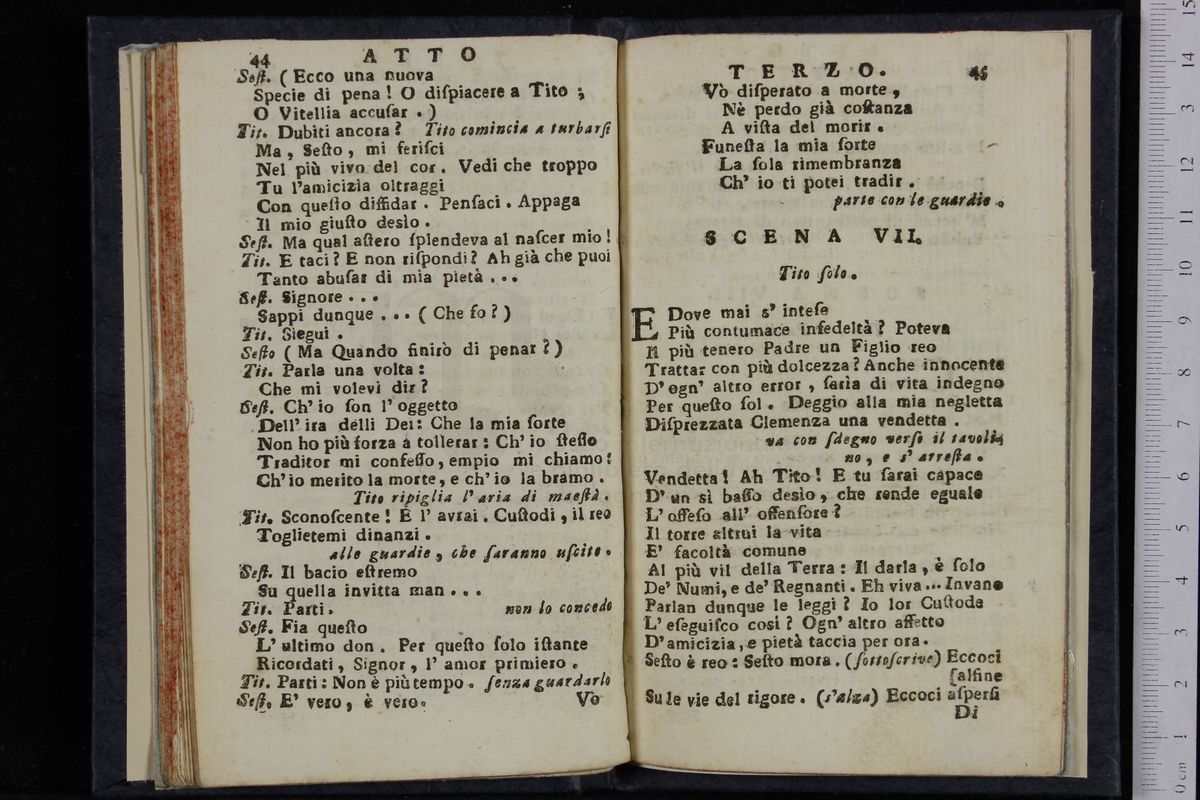 44 ATTO
Seſt. ( Ecco una nuova
Specie di pena ! O diſpiacere a Tito ;
O Vitellia accuſar . )
Tit. Dubiti ancora ? Tito comincia a turbarſi
Ma , Seſto , mi feriſci
Nel più vivo del cor . Vedi che troppo
Tu l'amicizia oltraggi
Con queſto diffidar . Penſaci . Appaga
Il mio giuſto desìo .
Seſt. Ma qual aſtero ſplendeva al naſcer mio !
Tit. E taci ? E non riſpondi ? Ah già che puoi
Tanto abuſar di mia pietà . . .
Seſt. Signore . . .
Sappi dunque . . . ( Che fo ? )
Tit. Siegui .
Seſto ( Ma Quando finirò di penar ? )
Tit. Parla una volta :
Che mi volevi dir ?
Seſt. Ch' io ſon l' oggetto
Dell' ira delli Dei : Che la mia ſorte
Non ho più forza a tollerar : Ch' io ſteſſo
Traditor mi confeſſo , empio mi chiamo :
Ch' io merito la morte , e ch' io la bramo .
Tito ripiglia l' aria di maeſtà .
Tit. Sconoſcente ! E l' avrai . Cuſtodi , il reo
Toglietemi dinanzi .
alle guardie , che ſaranno uſcite .
Seſt. Il bacio eſtremo
Su quella invitta man . . .
Tit. Parti . non lo concede
Seſt. Fia queſto
L' ultimo don . Per queſto ſolo iſtante
Ricordati , Signor , l' amor primiero .
Tit. Parti : Non è più tempo . ſenza guardarlo
Seſt. E' vero , è vero . Vo
TERZO. 45
Vò diſperato a morte ,
Nè perdo già coſtanza
A viſta del morir .
Funeſta la mia ſorte
La ſola rimembranza
Ch' io ti potei tradir .
parte con le guardie .
SCENA VII.
Tito ſolo .
E Dove mai s' inteſe
Più contumace infedeltà ? Poteva
Il più tenero Padre un Figlio reo
Trattar con più dolcezza ? Anche innocente
D' ogn' altro error , ſaria di vita indegno
Per queſto ſol . Deggio alla mia negletta
Diſprezzata Clemenza una vendetta .
va con ſdegno verſo il tavoli-
no , e s' arreſta .
Vendetta ! Ah Tito ! E tu ſarai capace
D' un sì baſſo desìo , che rende eguale
L' offeſo all' offenſore ?
Il torre altrui la vita
E' facoltà comune
Al più vil della Terra : Il darla , è ſolo
De' Numi , e de' Regnanti . Eh viva ... Invano
Parlan dunque le leggi ? Io lor Cuſtode
L' eſeguiſco così ? Ogn' altro affetto
D' amicizia , e pietà taccia per ora .
Seſto è reo : Seſto mora . (ſottoſcrive) Eccoci
ſalfine
Su le vie del rigore . (s'alza) Eccoci aſperſi
Di
0 cm 1 2 3 4 5 6 7 8 9 10 11 12 13 14 15